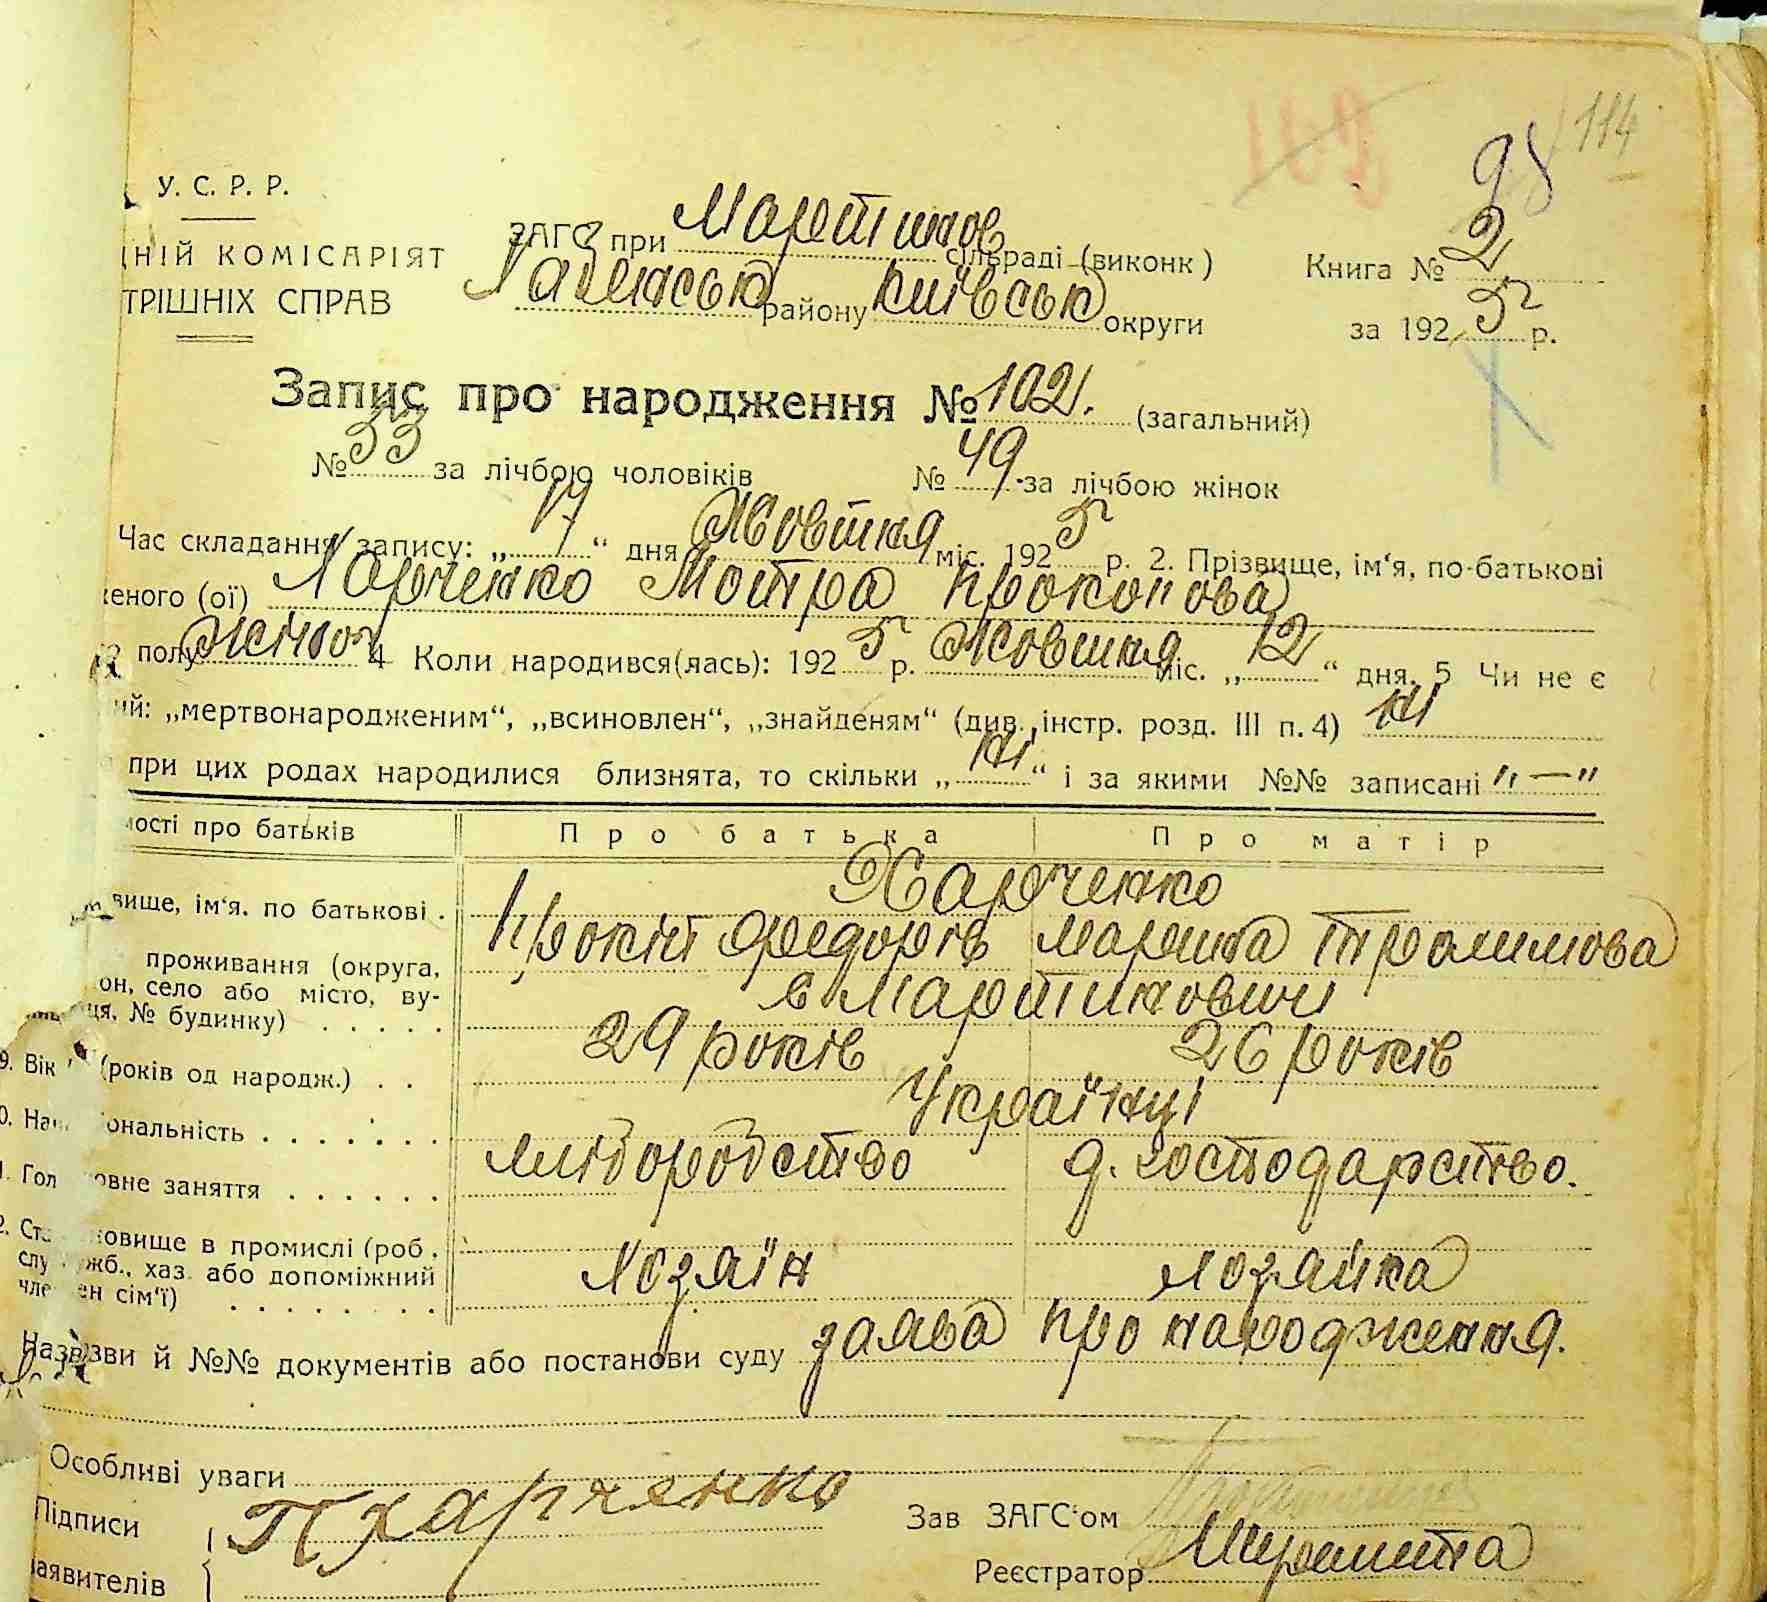 114
98
У. С. Р. Р.
ЗАГС при Мартинов сільраді (виконк)
Книга № 2
НІЙ КОМІСАРІЯТ
району Київськ округи
ТРІШНІХ СПРАВ
за 1925 р.
Запис про народження № 102. (загальний)
№ 33 за лічбою чоловіків № 49 за лічбою жінок
Час складання запису: „17“ дня Жовтня міс. 1925 р. 2. Прізвище, ім‘я, по-батькові
женого (ої) Харченко Мотря Прокопова
полу жіноч 4 Коли народився(лась): 1925 р. Жовтня міс. „12“ дня. 5 Чи не є
ий: „мертвонародженим“, „всиновлен“, „знайденям“ (див. інстр. розд. III п. 4) ні
при цих родах народилися близнята, то скільки „ні“ і за якими №№ записані "—"
мості про батьків Про батька Про матір
Харченко
вище, ім‘я. по батькові .
Прокіп Федорів Марина Трохимова
проживання (округа,
он, село або місто, ву-
ця, № будинку) . . . . .
с Мартиновичі
9. Вік (років од народж.) . . 29 років 26 років
Українці
0. Національність . . . . . . .
1. Головне заняття . . . . . . хліборобство д. господарство.
2. Становище в промислі (роб.
служб., хаз. або допоміжний
член сім‘ї) . . . . . . . .
Хозяїн Хозяйка
Назви й №№ документів або постанови суду заява про народження.
Особливі уваги
Підписи
П Харченко
Зав ЗАГС‘ом
заявителів
Реєстратор